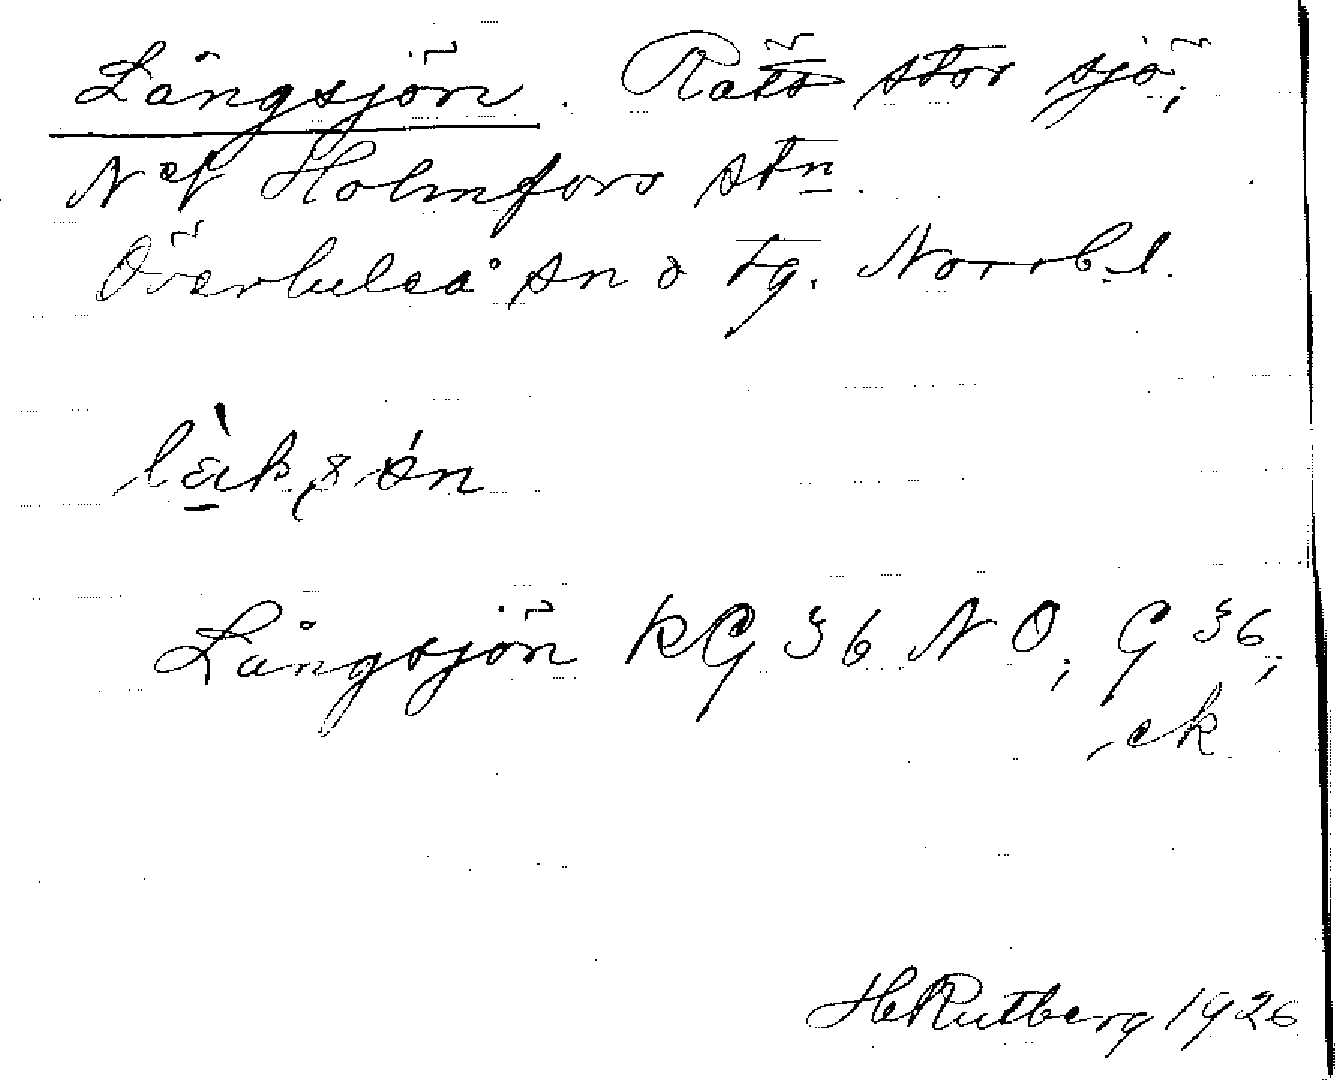 Långsjön. Rätt stor sjö,
N ef Holmfors stn.
Överluleå sn o tg. Norrb. l.
làksǿn
Långsjön KG 36 NO, G 36,
ek
H Rutberg 1926